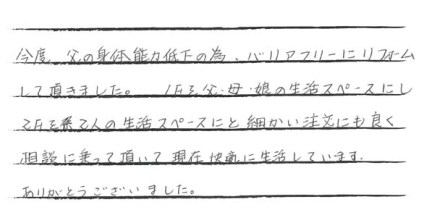 今度、父の身体能力低下の為、バリアフリーにリフォーム
して頂きました。 1Fを父・母・娘の生活スペースにし
2Fを 2人の生活スペースにと細かい注文にも良く
相談に乗って頂いて現在快適に生活しています。
ありがとうございました。